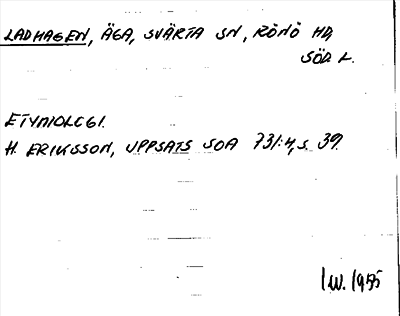 LADHAGEN, ÄGA, SVÄRTA SN, RÖNÖ HD,
SÖD L.
ETYMOLOGI.
H. ERIKSSON, UPPSATS SOA 731:4, S. 39.
I.W. 1955